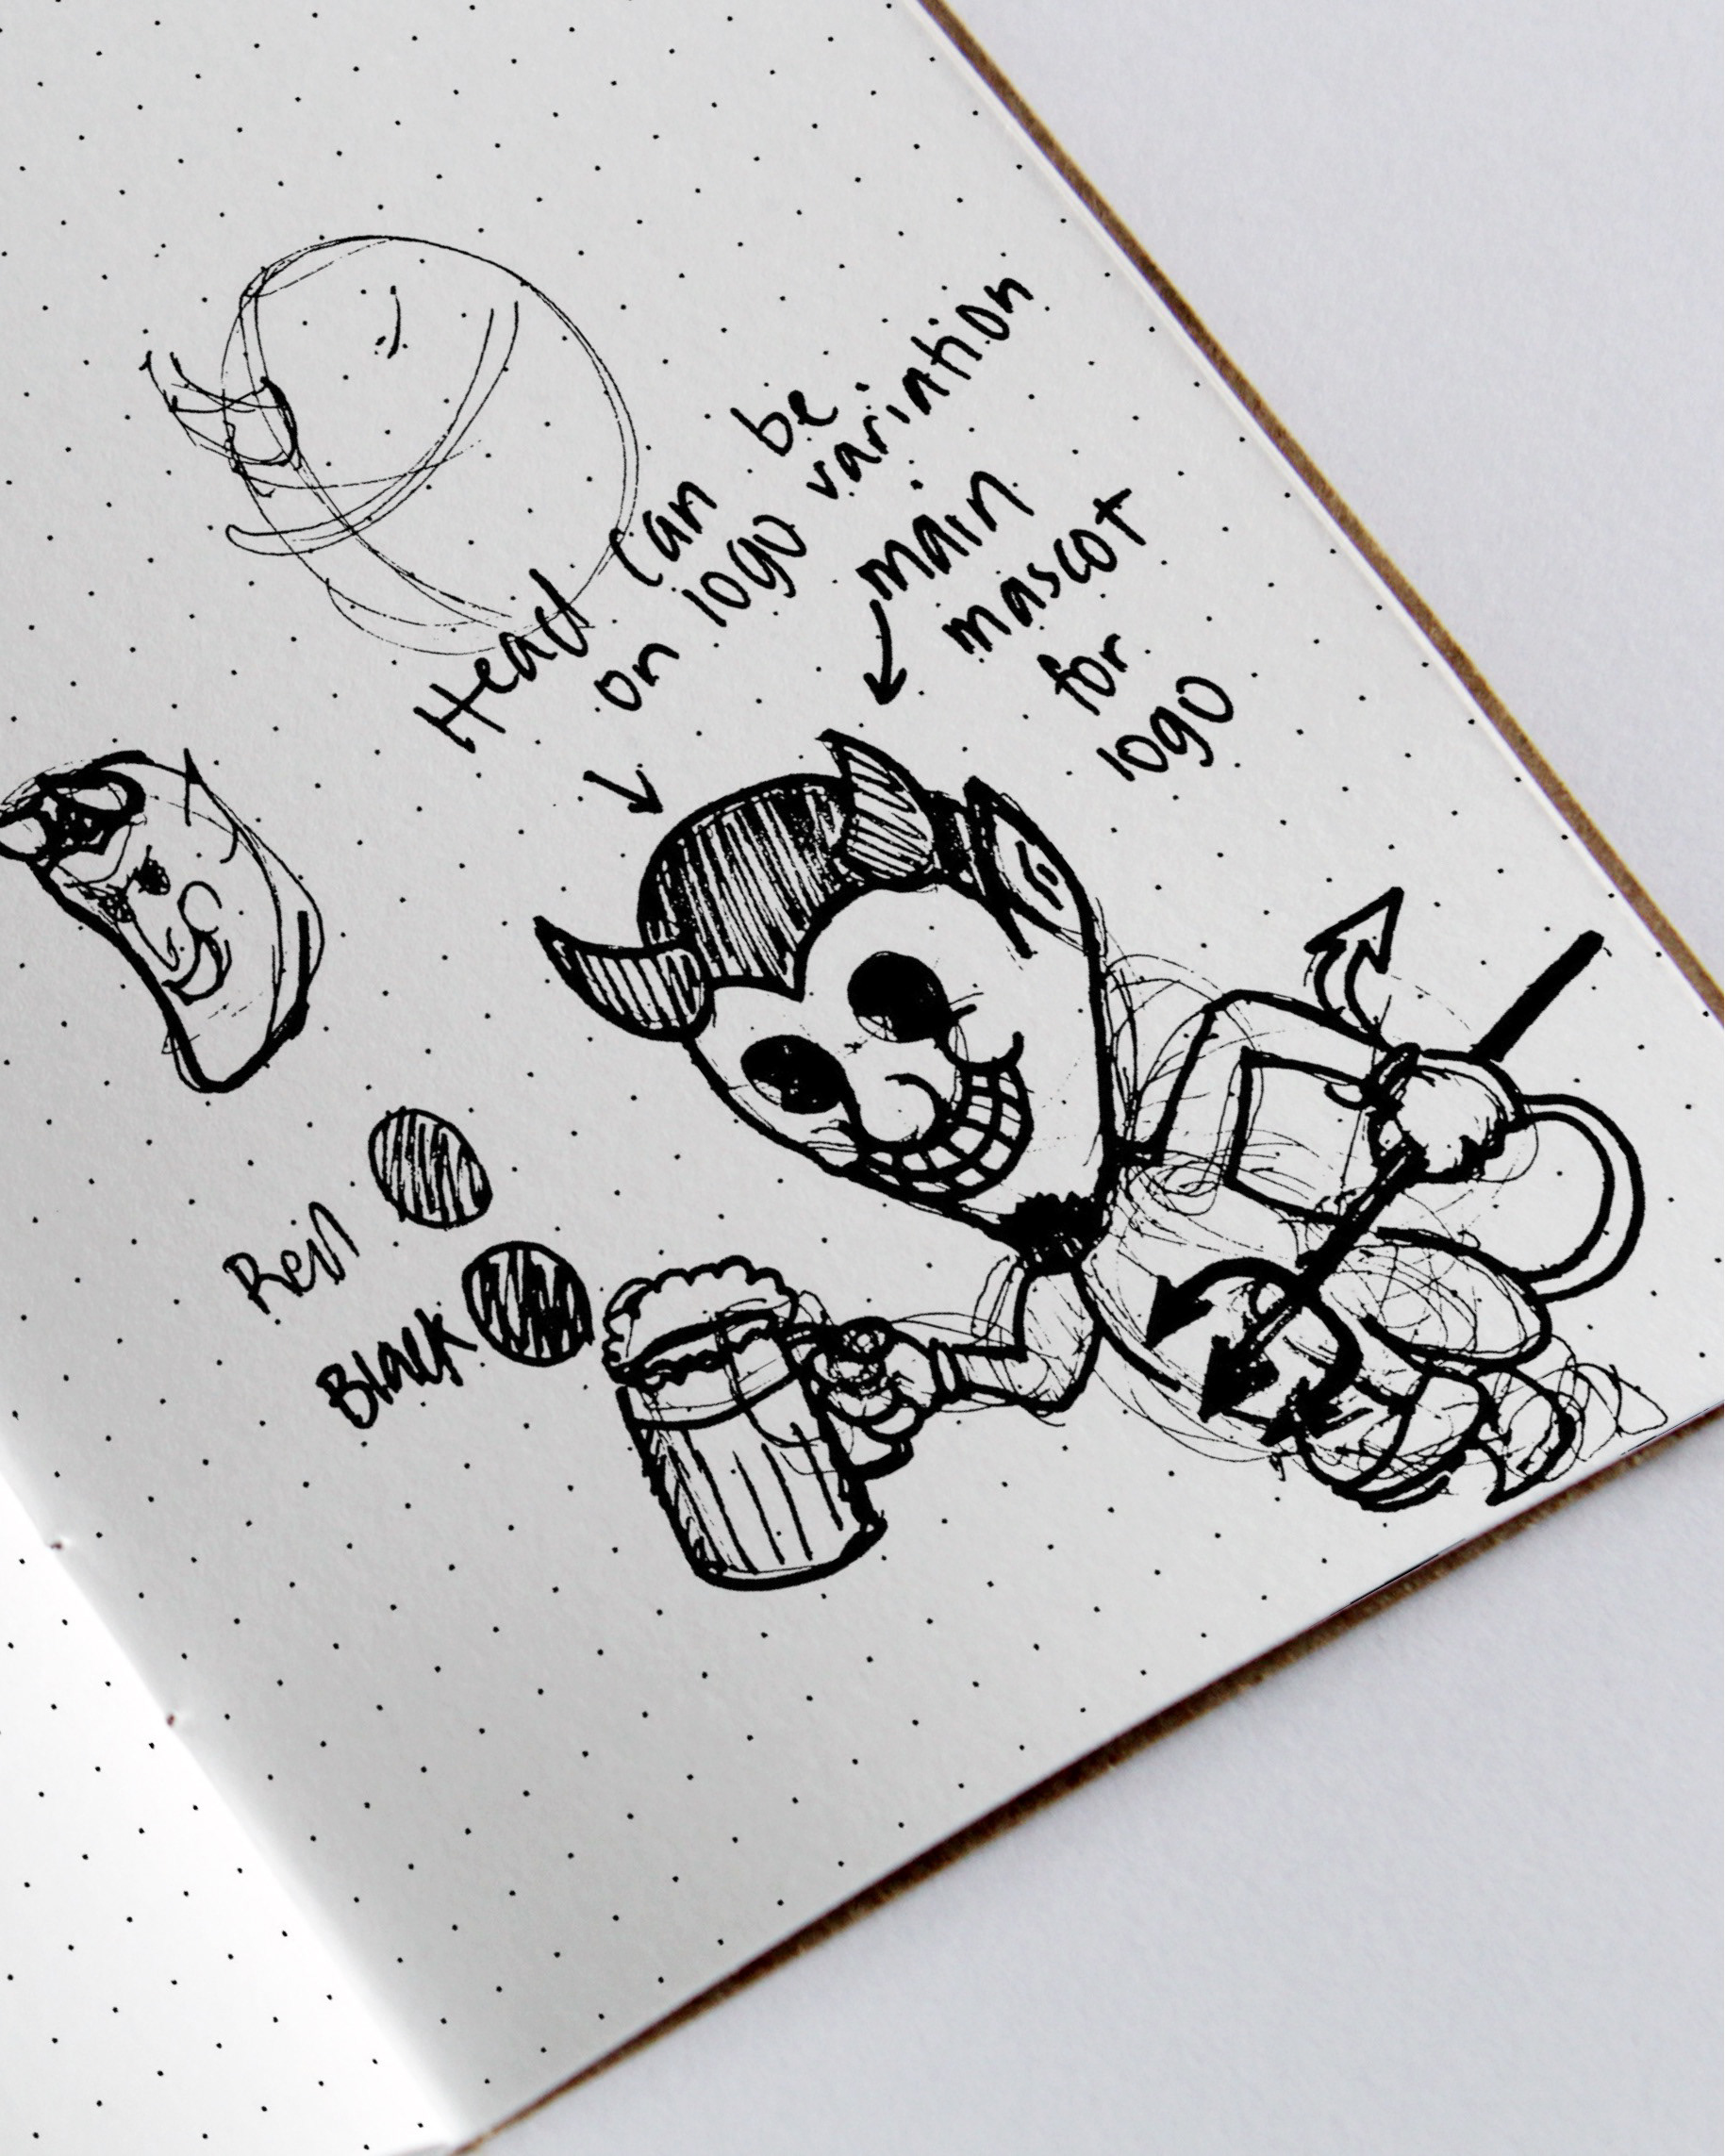 Head can be
on logo variation
main
mascot
for
logo
Red
Black